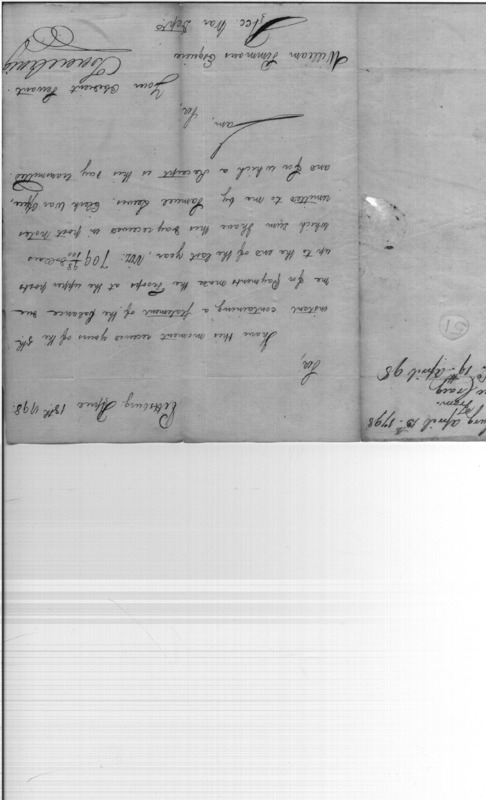 Pittsburg April 13th. 1798.
Sir,
I have this moment received yours of the 5th.
instant containing a Statement of the balance due
me for Payments made the Troops at the upper posts
up to the end of the last year, Viz: 709 98/100 Dollars
which sum I have this day received in post notes
remitted to me by Samuel Lewis, Clerk War Office,
and for which a Receipt is this day transmitted.
I am,
Sir,
Your Obedient Servant.
Isaac Craig
William Simmons Esquire
Acct. War Dept.
burg April 13th. 1798
Craig
19 April 98
51